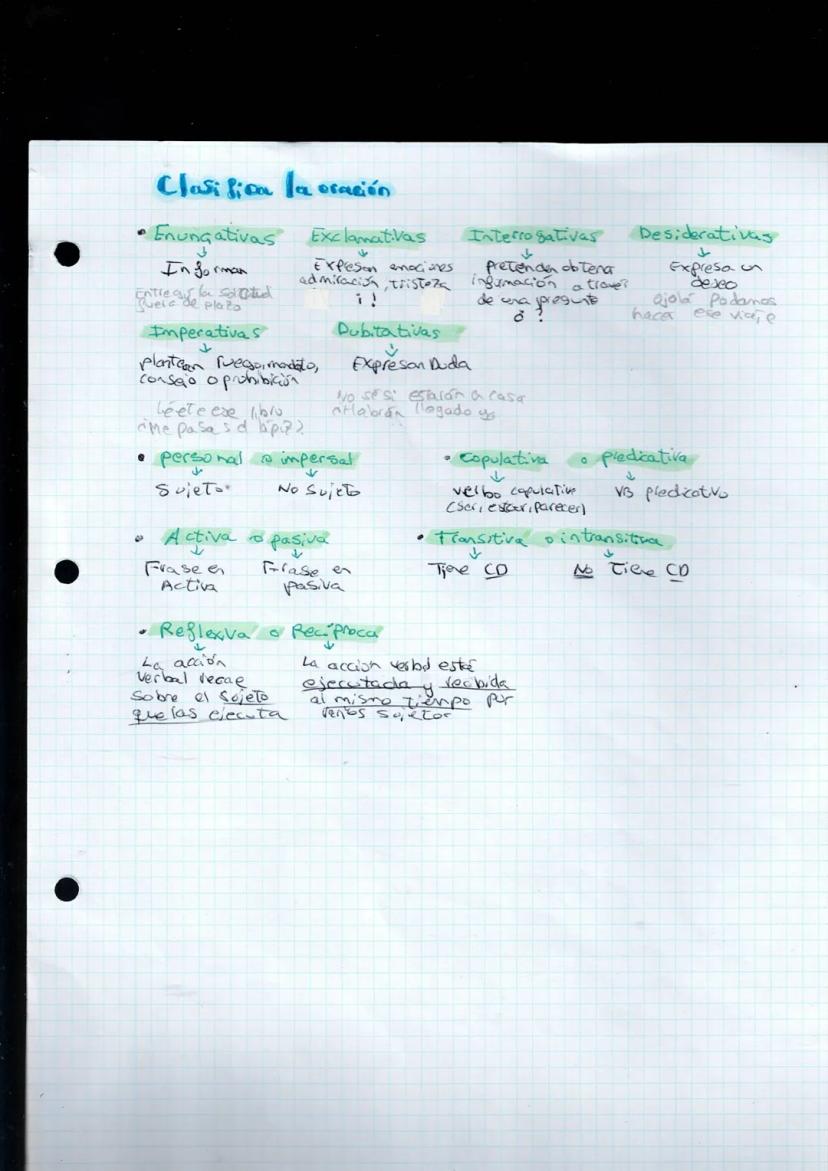 Clasifica la oración
• Enunciativas Exclamativas Interrogativas Desiderativas
Informan
Expresan emociones
admiración, tristeza
¡ !
pretenden obtener
información a través
de una pregunta
¿ ?
Expresa un
deseo
Entregué la solicitud
fuera de plazo
ojalá podamos
hacer ese viaje
Imperativas Dubitativas
plantean ruego, mandato,
consejo o prohibición
Expresan Duda
Léete ese libro
¿Me pasas el lápiz?
No sé si estarán en casa
¿Habrán llegado ya
• personal o impersal
Sujeto No Sujeto
• copulativa o predicativa
verbo copulativo
(ser, estar, parecer)
VB predicativo
• Activa o pasiva
Frase en
Activa
Frase en
pasiva
• Transitiva o intransitiva
Tiene CD No Tiene CD
• Reflexiva o Recíproca
La acción
verbal recae
sobre el sujeto
que las ejecuta
La acción verbal está
ejecutada y recibida
al mismo tiempo por
varios sujetos